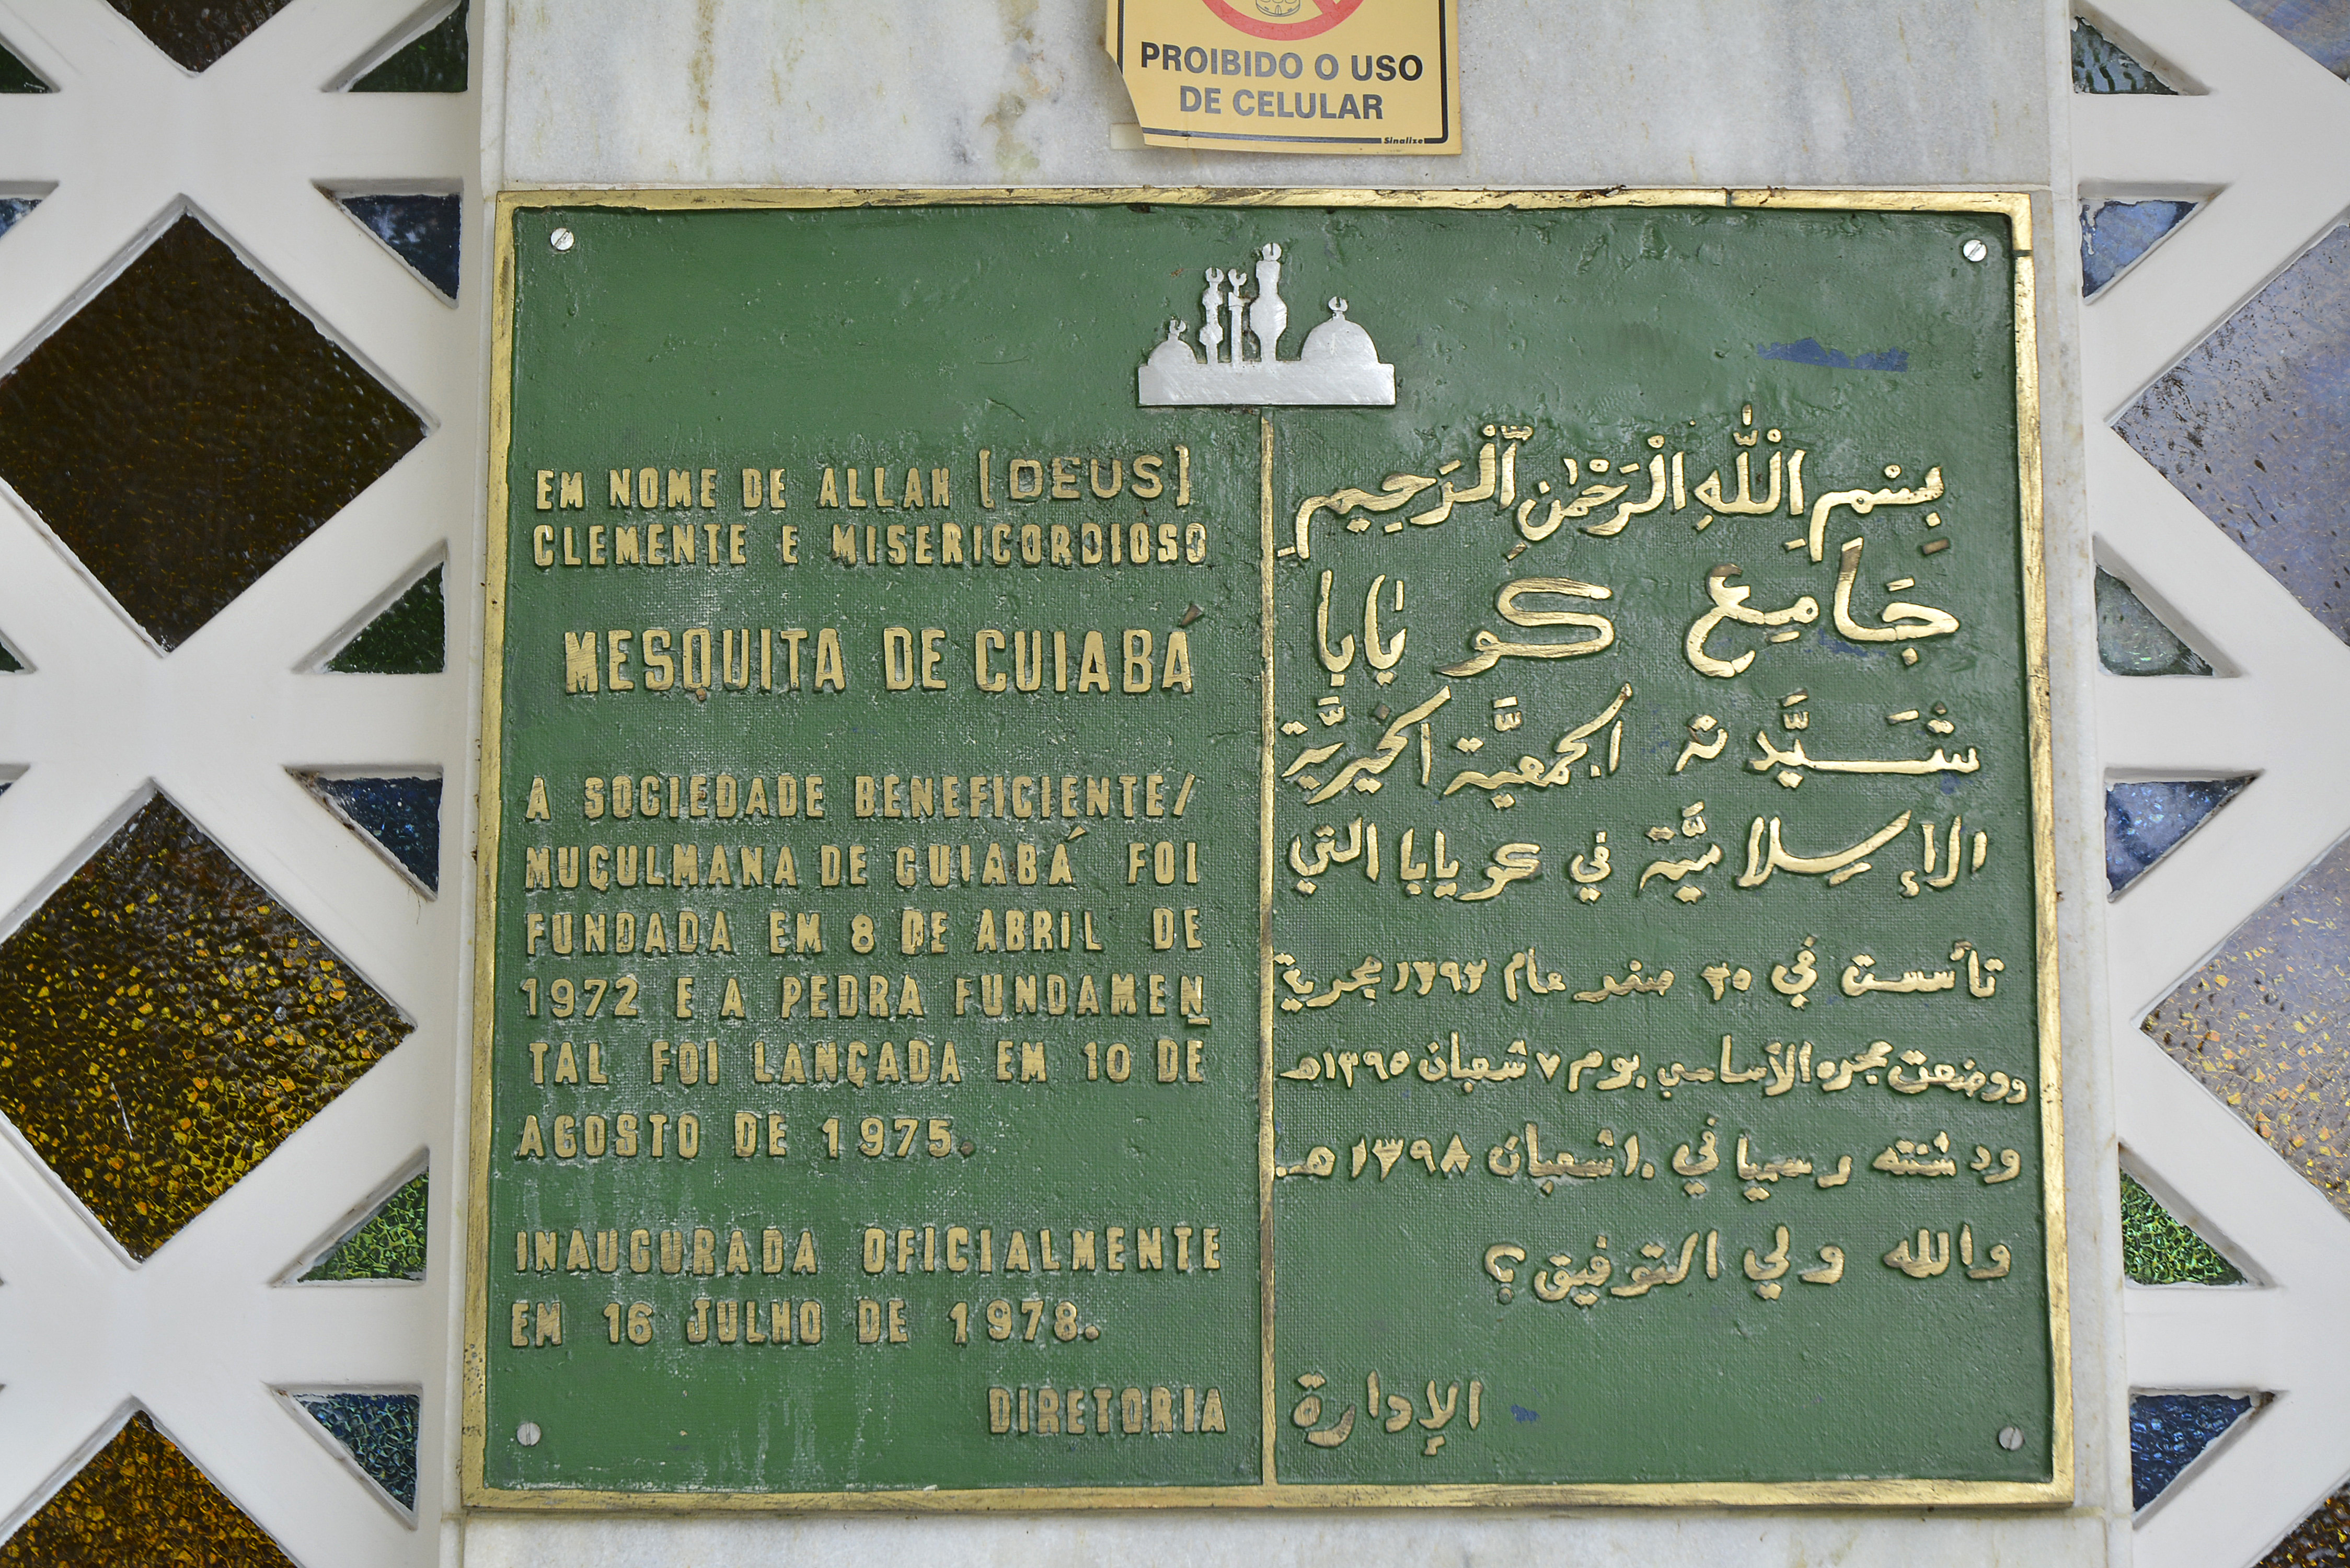 PROIBIDO O USO
DE CELULAR
Sinalize
EM NOME DE ALLAH (DEUS)
CLEMENTE E MISERICORDIOSO
MESQUITA DE CUIABÁ
A SOCIEDADE BENEFICIENTE/
MUÇULMANA DE CUIABÁ FOI
FUNDADA EM 8 DE ABRIL DE
1972 E A PEDRA FUNDAMEN
TAL FOI LANÇADA EM 10 DE
AGOSTO DE 1975.
INAUGURADA OFICIALMENTE
EM 16 JULHO DE 1978.
DIRETORIA
بِسْمِ اللّٰهِ الْرَحْمٰنِ الْرَحِيمِ
جَامِع كو يابا
شَيَّدته الجمعيَّة الخيريَّة
الإسلاميَّة في كويابا التي
تأسست في ٢٥ صفر عام ١٣٩٢ هجرية
ووضعت حجره الأساسي يوم ٧ شعبان ١٣٩٥هـ
ودشنته رسميا في ١٠ شعبان ١٣٩٨ هـ
والله ولي التوفيق؟
الإدارة